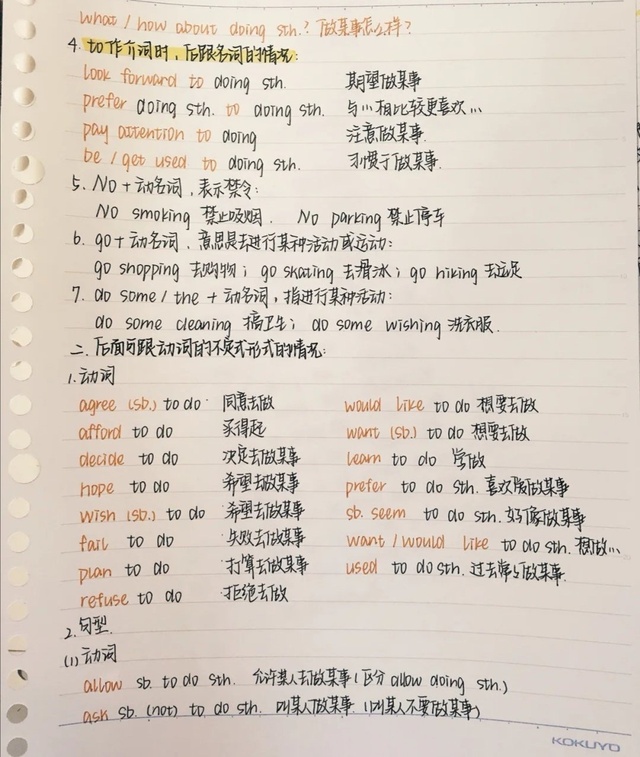 what / how about doing sth.? 做某事怎么样?
4. to作介词时,后跟名词的情况:
look forward to doing sth. 期望做某事
prefer doing sth. to doing sth. 与…相比较更喜欢…
pay attention to doing 注意做某事
be / get used to doing sth. 习惯于做某事
5. No + 动名词,表示禁令:
No smoking 禁止吸烟. No parking 禁止停车
6. go + 动名词,意思是去进行某种活动或运动:
go shopping 去购物; go skating 去滑冰; go hiking 去远足
7. do some / the + 动名词,指进行某种活动:
do some cleaning 搞卫生; do some wishing 洗衣服.
二. 后面可跟动词的不定式形式的情况:
1. 动词
agree (sb.) to do 同意去做 would like to do 想要去做
afford to do 买得起 want (sb.) to do 想要去做
decide to do 决定去做某事 learn to do 学做
hope to do 希望去做某事 prefer to do sth. 喜欢做某事
wish (sb.) to do 希望去做某事 sb. seem to do sth. 好像做某事
fail to do 失败去做某事 want / would like to do sth. 想做…
plan to do 打算去做某事 used to do sth. 过去常常做某事
refuse to do 拒绝去做
2. 句型.
(1) 动词
allow sb. to do sth. 允许某人去做某事(区分 allow doing sth.)
ask sb. (not) to do sth. 叫某人做某事 (叫某人不要做某事)
KOKUYO